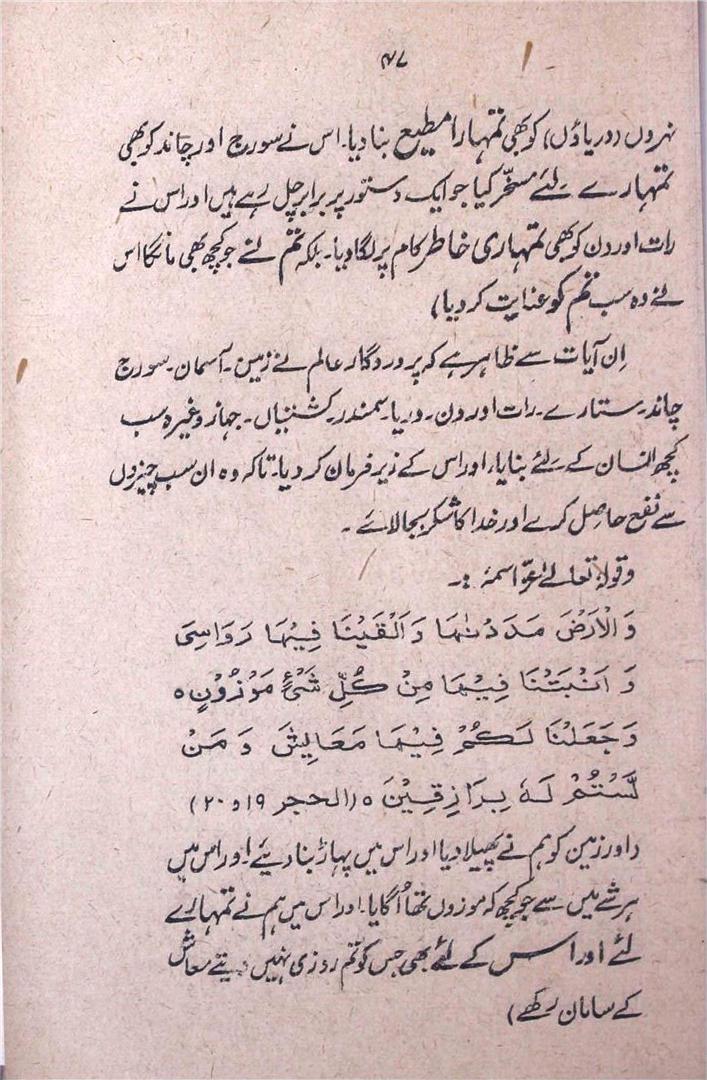 ۴۷
نہروں (دریاؤں) کو بھی تمہارا مطیع بنا دیا۔ اس نے سورج اور چاند کو بھی
تمہارے لئے مسخّر کیا جو ایک دستور پر برابر چل رہے ہیں اور اس نے
رات اور دن کو بھی تمہاری خاطر کام پر لگا دیا۔ بلکہ تم نے جو کچھ بھی مانگا اس
نے وہ سب تم کو عنایت کر دیا)
اِن آیات سے ظاہر ہے کہ پروردگار عالم نے زمین۔ آسمان۔ سورج
چاند۔ ستارے۔ رات اور دن۔ دریا۔ سمندر۔ کشتیاں۔ جہاز وغیرہ سب
کچھ انسان کے لئے بنایا، اور اس کے زیر فرمان کر دیا۔ تاکہ وہ ان سب چیزوں
سے نفع حاصل کرے اور خدا کا شکر بجا لائے۔
وقولہٗ تعالےٰ عزّ اسمہٗ :۔
وَ الْاَرْضَ مَدَدْنٰهَا وَ اَلْقَيْنَا فِيْهَا رَوَاسِىَ
وَ اَنْبَتْنَا فِيْهَا مِنْ كُلِّ شَىْءٍ مَوْزُوْنٍ ٥
وَ جَعَلْنَا لَكُمْ فِيْهَا مَعَايِشَ وَ مَنْ
لَّسْتُمْ لَهٗ بِرَازِقِيْنَ ٥ (الحجر ۱۹ و ۲۰)
(اور زمین کو ہم نے پھیلا دیا اور اس میں پہاڑ بنا دیئے اور اس میں
ہر شے میں سے جو کچھ کہ موزوں تھا اُگایا۔ اور اس میں ہم نے تمہارے
لئے اور اس کے لئے بھی جس کو تم روزی نہیں دیتے معاش
کے سامان رکھے)